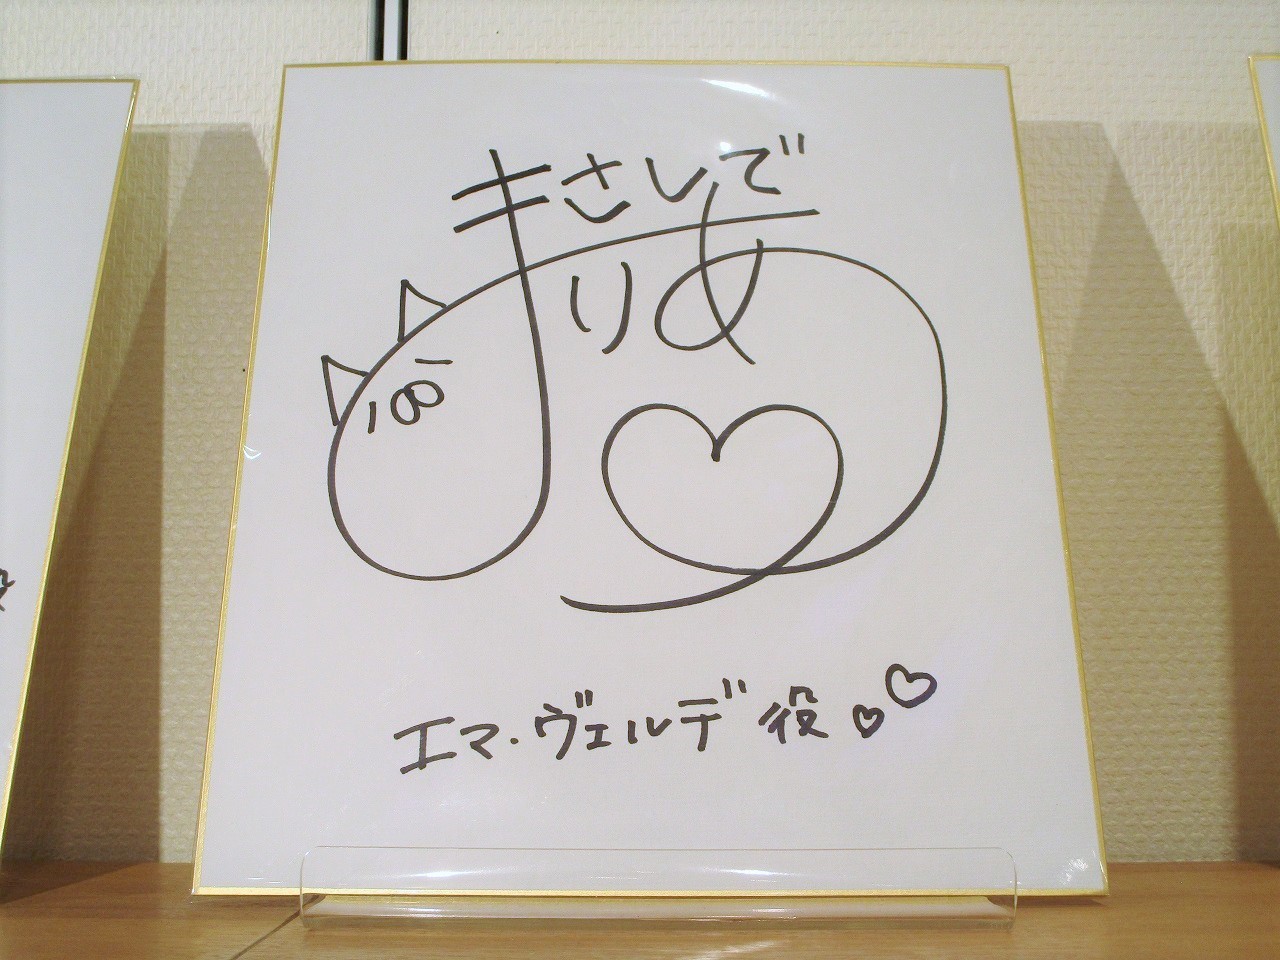 まさしで
りあ
エマ・ヴェルデ役
役